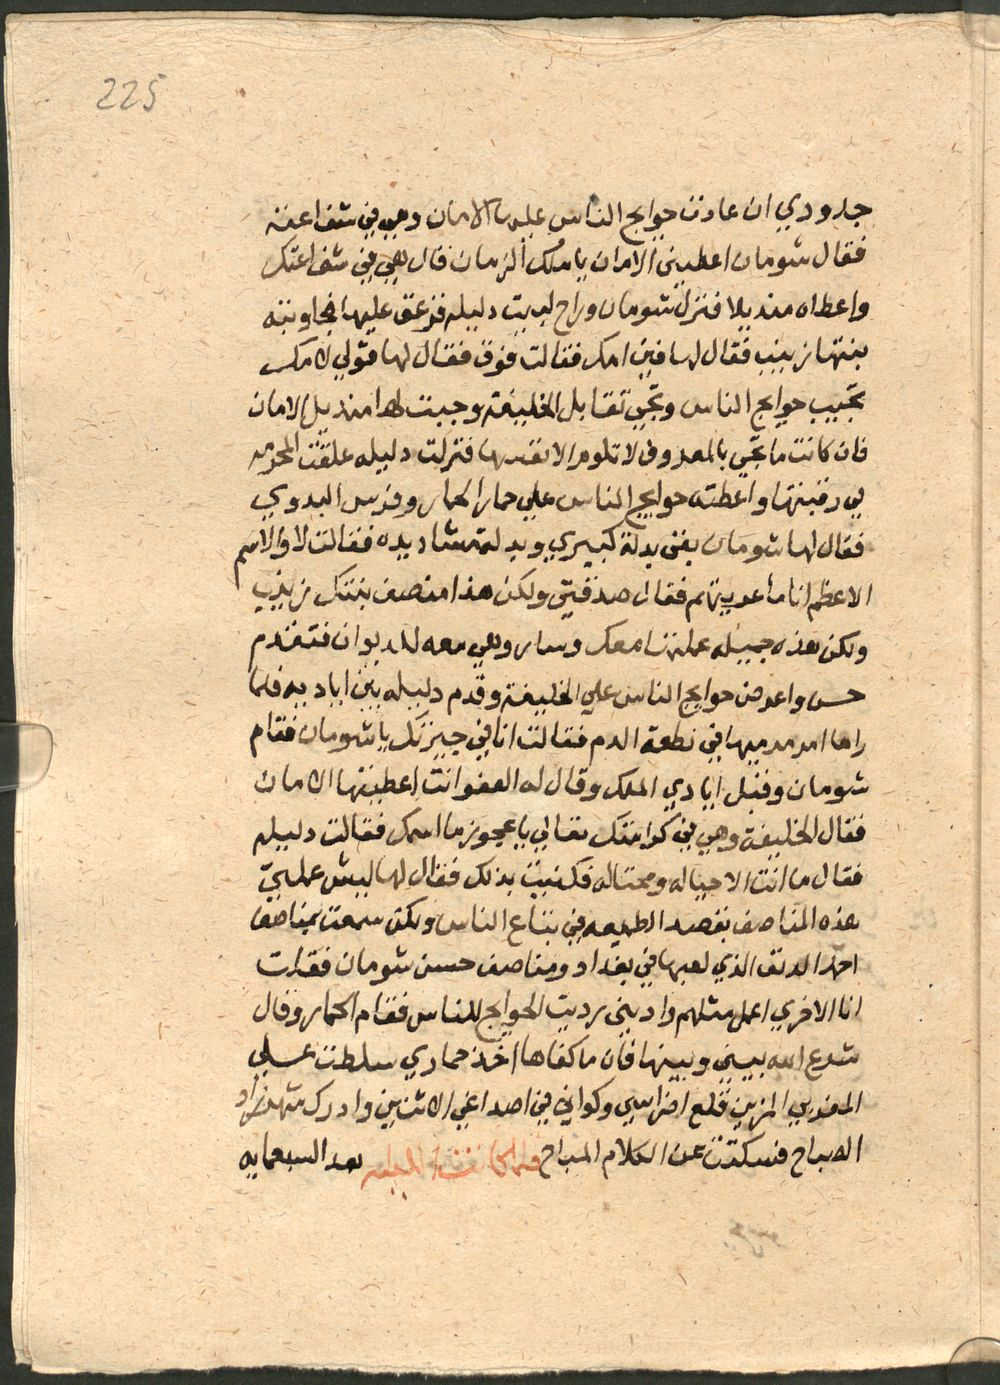 225
جدودي ان عادت حوايج الناس عليها الامان وهي في شفاعته
فقال شومان اعطيني الامان يا ملك الزمان قال هي في شفاعتك
واعطاه منديلا فنزل شومان وراح لبيت دليله فزعق عليها فجاوبته
بنتها زينب فقال لها فين امك فقالت فوق فقال لها قولي لامك
تجيب حوايج الناس وتجي تقابل الخليفة وجبت لها منديل الامان
فان كانت ما تجي بالمعروف لا تلوم الا نفسها فنزلت دليله علقت المحرمه
في رقبتها واعطته حوايج الناس علي حمار الحمار وفرس البدوي
فقال لها شومان بقي بدلة كبيري وبدلة مشاديده فقالت لا والاسم
الاعظم انا ما عريتهم فقال صدقتي ولكن هذا منصف بنتك زينب
ولكن هذه جميله عملتها معك وسار وهي معه للديوان فتقدم
حسن واعرض حوايج الناس علي الخليفة وقدم دليله بين اياديه فلما
راها امر برميها في نطعة الدم فقالت انا في جيرتك يا شومان فقام
شومان وقبل ايادي الملك وقال له العفو انت اعطيتها الامان
فقال الخليفة وهي في كرامتك تعالي يا عجوز ما اسمك فقالت دليله
فقال ما انت الا حياله ومحتاله فكنيت بذلك فقال لها ليش عملتي
هذه المناصف بقصد الطميعه في بتاع الناس ولكن سمعت بمناصف
احمد الدنف الذي لعبها في بغداد ومناصف حسن شومان فقلت
انا الاخري اعمل مثلهم واديني رديت الحوايج للناس فقام الحمار وقال
شرع الله بيني وبينها فان ما كفاها اخذ حماري سلطت علي
المغربي المزين قلع اضراسي وكواني في اصداغي الاثنين وادرك شهرزاد
الصباح فسكتت عن الكلام المباح فلما كانت الليله بعد السبعمايه